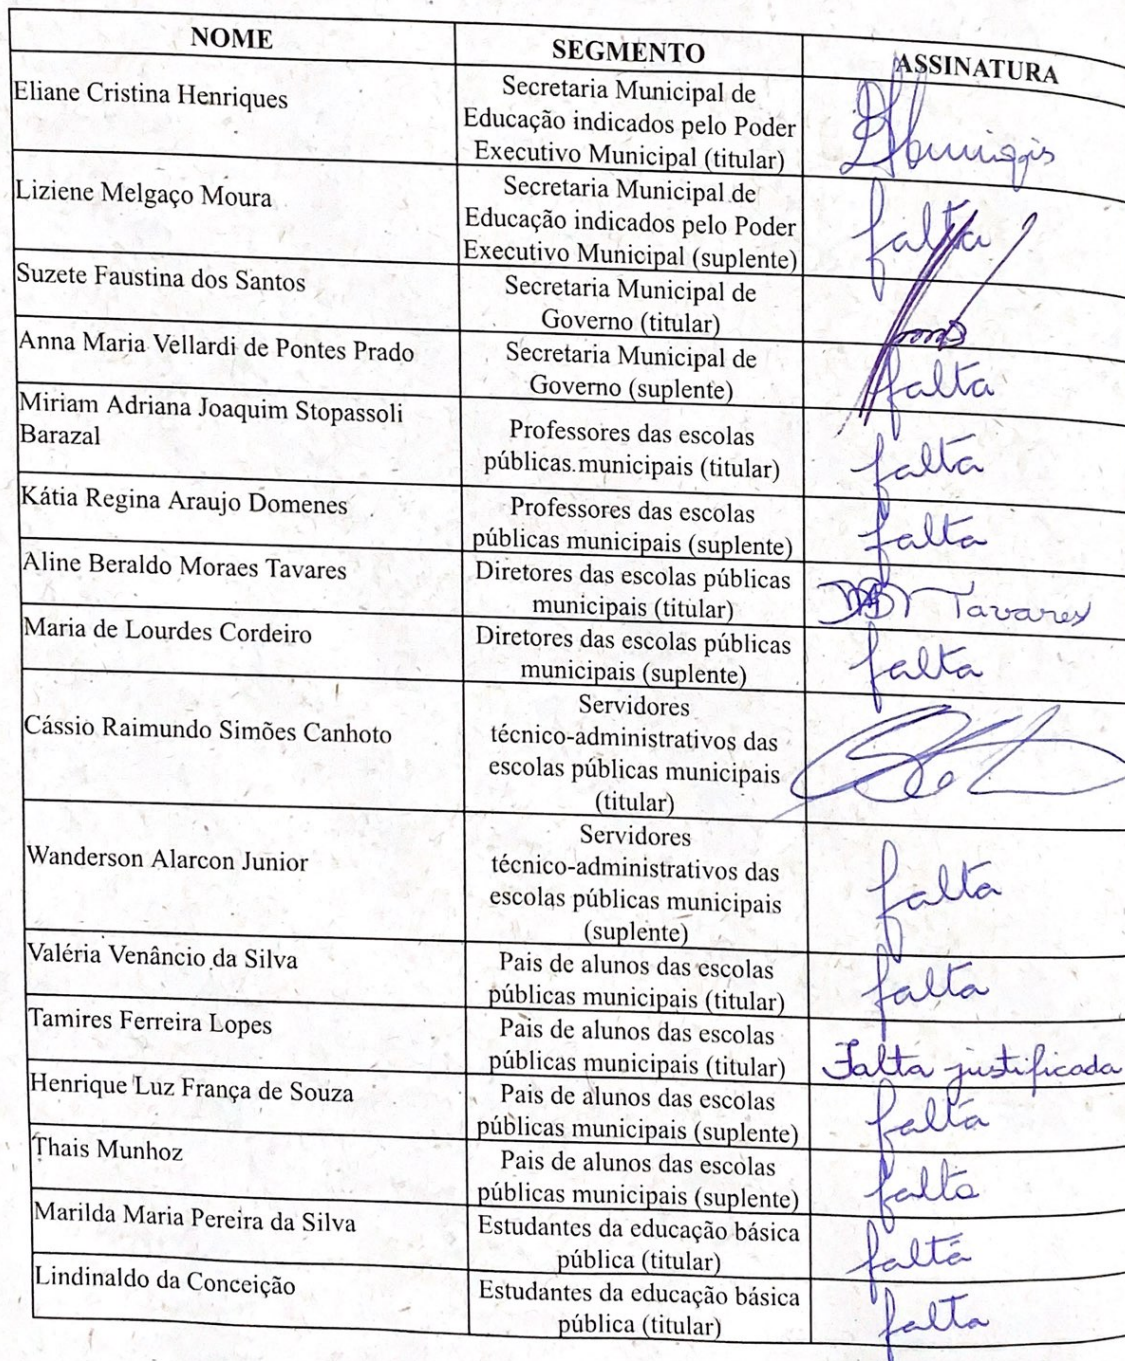 NOME SEGMENTO ASSINATURA
Eliane Cristina Henriques
Secretaria Municipal de
Educação indicados pelo Poder
Executivo Municipal (titular)
Liziene Melgaço Moura
Secretaria Municipal de
Educação indicados pelo Poder
Executivo Municipal (suplente)
falta
Suzete Faustina dos Santos
Secretaria Municipal de
Governo (titular)
Anna Maria Vellardi de Pontes Prado
Secretaria Municipal de
Governo (suplente)
falta
Miriam Adriana Joaquim Stopassoli
Barazal
Professores das escolas
públicas.municipais (titular)
falta
Kátia Regina Araujo Domenes
Professores das escolas
públicas municipais (suplente)
falta
Aline Beraldo Moraes Tavares
Diretores das escolas públicas
municipais (titular)
Tavares
Maria de Lourdes Cordeiro
Diretores das escolas públicas
municipais (suplente)
falta
Cássio Raimundo Simões Canhoto
Servidores
técnico-administrativos das
escolas públicas municipais
(titular)
Wanderson Alarcon Junior
Servidores
técnico-administrativos das
escolas públicas municipais
(suplente)
falta
Valéria Venâncio da Silva
Pais de alunos das escolas
públicas municipais (titular)
falta
Tamires Ferreira Lopes
Pais de alunos das escolas
públicas municipais (titular)
Falta justificada
Henrique Luz França de Souza
Pais de alunos das escolas
públicas municipais (suplente)
falta
Thais Munhoz
Pais de alunos das escolas
públicas municipais (suplente)
falta
Marilda Maria Pereira da Silva
Estudantes da educação básica
pública (titular)
falta
Lindinaldo da Conceição
Estudantes da educação básica
pública (titular)
falta